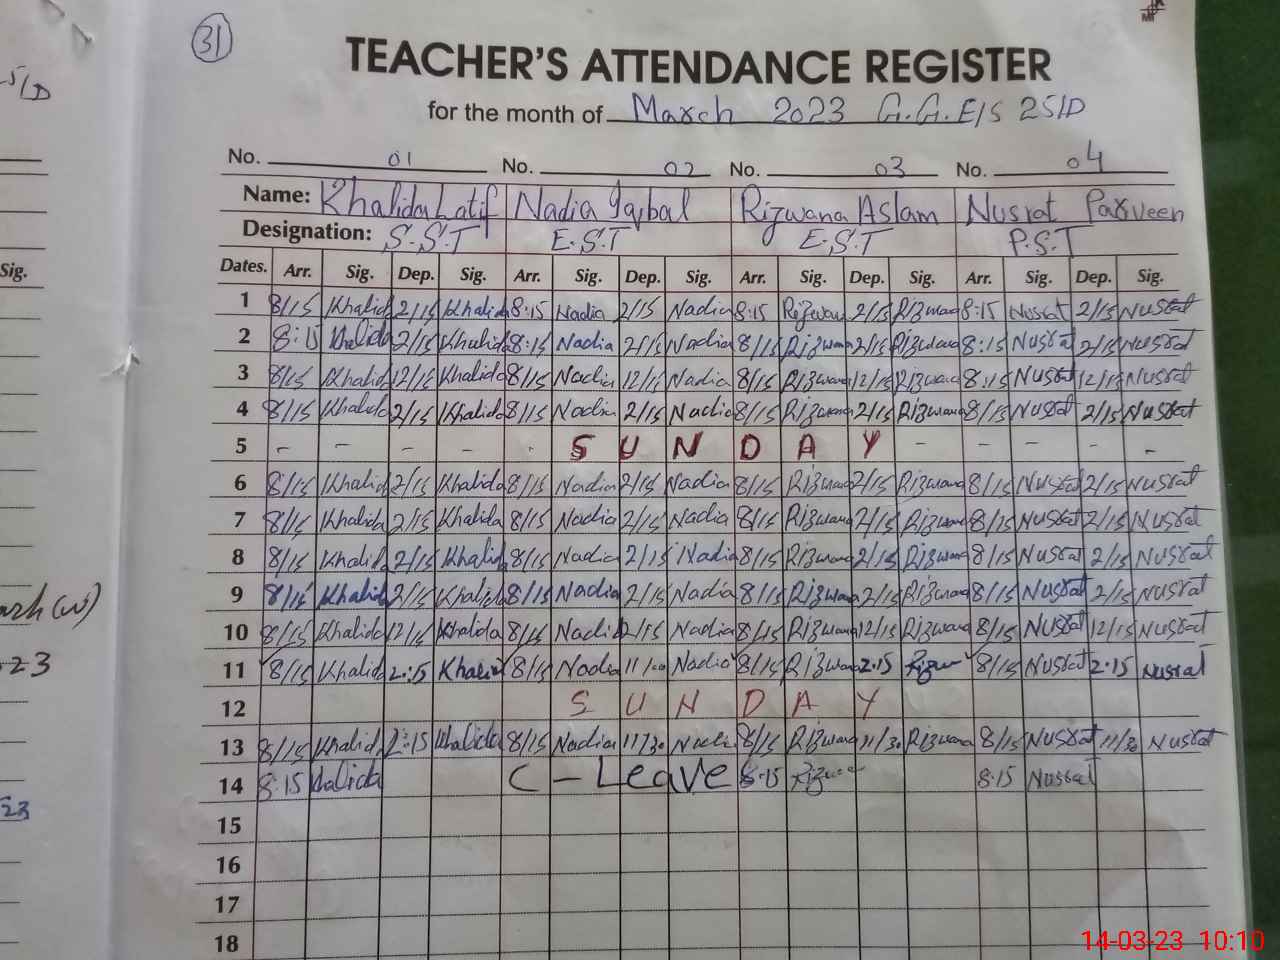 31
TEACHER'S ATTENDANCE REGISTER
for the month of March 2023 G.G.E/S 25/D
No. 01 No. 02 No. 03 No. 04
Name: Khalida Latif Nadia Iqbal Rizwana Aslam Nusrat Parveen
Designation: S.S.T E.S.T E.S.T P.S.T
Sig.
Dates. Arr. Sig. Dep. Sig. Arr. Sig. Dep. Sig. Arr. Sig. Dep. Sig. Arr. Sig. Dep. Sig.
1 8/15 Khalida 2/15 Khalida 8:15 Nadia 2/15 Nadia 8:15 Rizwan 2/15 Rizwana 8:15 Nusrat 2/15 Nusrat
2 8:15 Khalida 2/15 Khalida 8:15 Nadia 2/15 Nadia 8/15 Rizwana 2/15 Rizwana 8:15 Nusrat 2/15 Nusrat
3 8/15 Khalid 12/15 Khalida 8/15 Nadia 12/15 Nadia 8/15 Rizwana 12/15 Rizwana 8:15 Nusrat 12/15 Nusrat
4 8/15 Khalida 2/15 Khalida 8/15 Nadia 2/15 Nadia 8/15 Rizwana 2/15 Rizwana 8/15 Nusrat 2/15 Nusrat
5 - - - - - S U N D A Y - - - - -
6 8/15 Khalid 2/15 Khalida 8/15 Nadia 2/15 Nadia 8/15 Rizwana 2/15 Rizwana 8/15 Nusrat 2/15 Nusrat
7 8/15 Khalida 2/15 Khalida 8/15 Nadia 2/15 Nadia 8/15 Rizwana 2/15 Rizwana 8/15 Nusrat 2/15 Nusrat
8 8/15 Khalid 2/15 Khalid 8/15 Nadia 2/15 Nadia 8/15 Rizwana 2/15 Rizwana 8/15 Nusrat 2/15 Nusrat
9 8/15 Khalid 2/15 Khalida 8/15 Nadia 2/15 Nadia 8/15 Rizwana 2/15 Rizwana 8/15 Nusrat 2/15 Nusrat
10 8/15 Khalida 12/15 Khalida 8/15 Nadia 12/15 Nadia 8/15 Rizwana 12/15 Rizwana 8/15 Nusrat 12/15 Nusrat
11 8/15 Khalid 2:15 Khalid 8/15 Nadia 11/00 Nadia 8/15 Rizwana 2:15 8/15 Nusrat 2:15 Nusrat
12 S U N D A Y
13 8/15 Khalid 2:15 Khalida 8/15 Nadia 11/30 Nadi 8/15 Rizwana 11/30 Rizwana 8/15 Nusrat 11/30 Nusrat
14 8:15 Khalida C - Leave 8:15 8:15 Nusrat
15
16
17
18
14-03-23 10:10